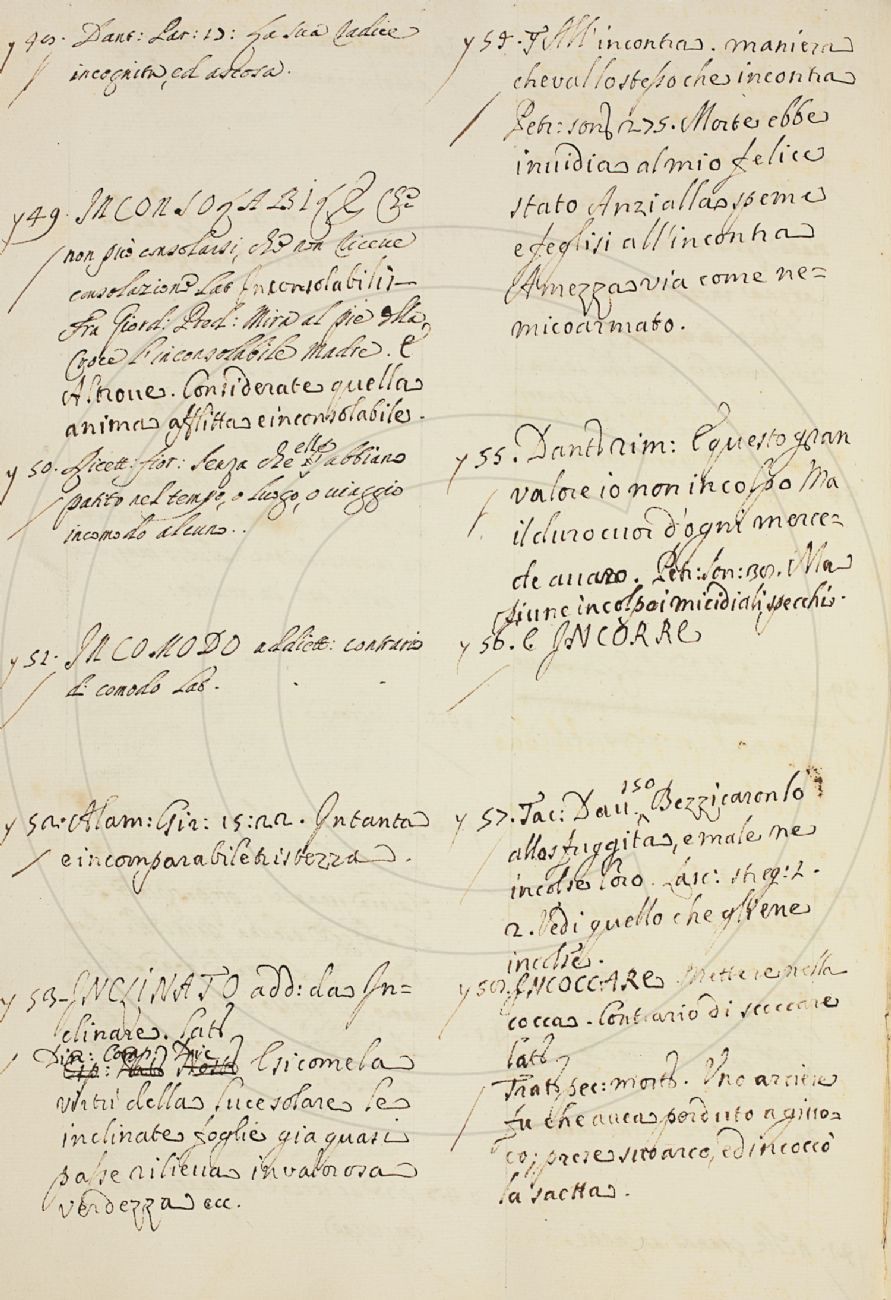 y 49. Dant: Par: 17: La sua radice
incognita, ed ascosa.
y 49. INCONSOLABILE Che
non può consolarsi, che non riceve
consolazione Lat Inconsolabilis
Fra Giord: Pred: Mira al piè della
Croce l'inconsolabile Madre. E
Altroue. Considerate quella
anima afflitta e inconsolabile.
y 50. Ricett: fior: Senza che elle abbiano
patito nel tempo, o luogo, o uiaggio
incomodo alcuno..
y 51. INCOMODO addiett: contrario
di comodo Lat.
y 52. Alam: Gir: 15:22. In tanta
e incomparabile tristezza.
y 53. INCLINATO add: da In=
clinare. Lat
Din: Comp: Dic
E sicome la
virtù della luce solare le
inclinate foglie gia quasi
passe rilieua in valorosa
verdezza ecc.
y 54. All'incontra. maniera
che val lo stesso che incontra
Petr: son 275. Morte ebbe
inuidia al mio felice
stato Anzi alla speme
e feglisi all'incontra
A mezza via come ne=
mico armato.
y 55. Dant rim: E questo gran
valore io non incolpo Ma
il duro cuor d'ogni merce=
de auaro. Petr: son: 38. Ma
piu ne incolpo i micidiali specchi.
y 56. E INCORRE
y 57. Tac: Dau: 150 Bezzicaronlo
allo sfuggita, e male ne
incolse loro. Lasc: streg: 2.
2. Vedi quello che gliene
incolse.
y 58. INCOCCARE Mettere nella
cocca. Contrario di scoccare
Lat
Tratt: pec: mort. Uno arciere
fu che auea perduto a giuo=
co; prese suo arco, ed incoccò
la saetta.